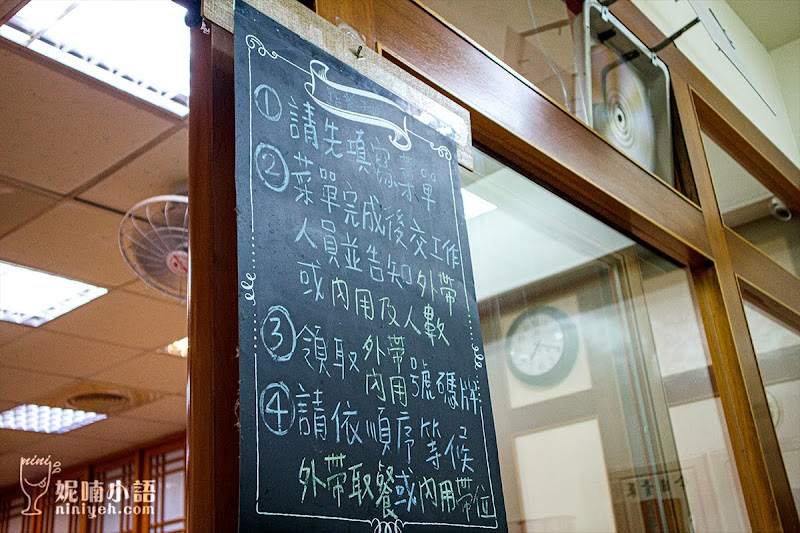 ①請先填寫菜單
②菜單完成後交工作
人員並告知外帶
或內用及人數
③領取外帶內用號碼牌
④請依順序等候
外帶取餐或內用帶位
nini
妮喃小語
niniyeh.com